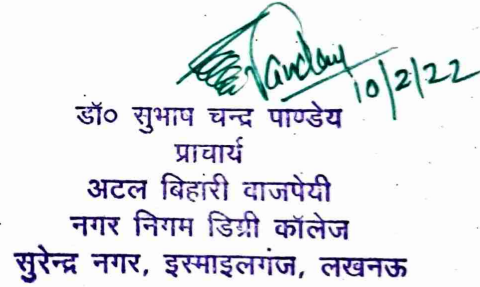 Pandey
10/2/22
डॉ० सुभाष चन्द्र पाण्डेय
प्राचार्य
अटल बिहारी वाजपेयी
नगर निगम डिग्री कॉलेज
सुरेन्द्र नगर, इस्माइलगंज, लखनऊ